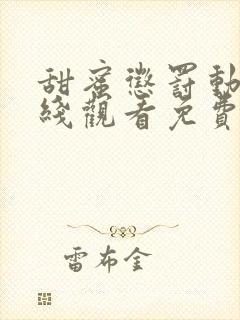 甜蜜懲罰動
綫觀看免費
雷布金